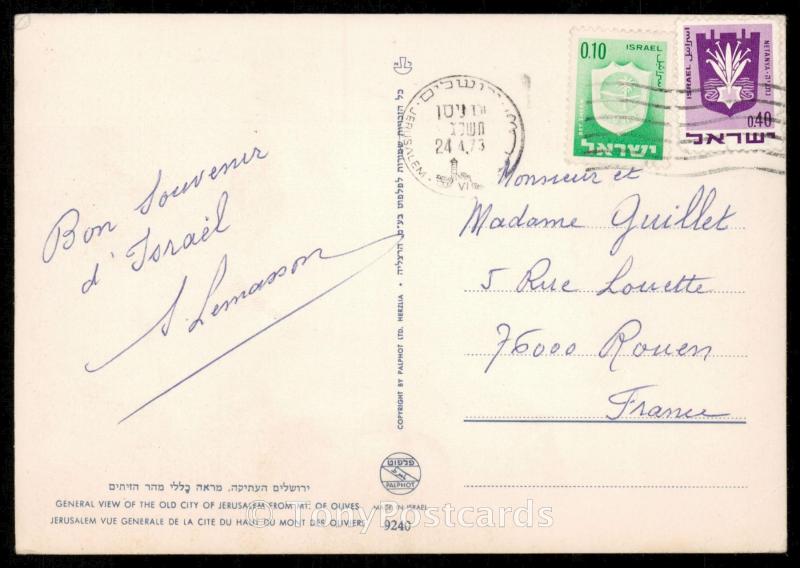 Bon Souvenir
d'Israël
S Lemasson
ירושלים העתיקה. מראה כללי מהר הזיתים
GENERAL VIEW OF THE OLD CITY OF JERUSALEM FROM MT. OF OLIVES
JERUSALEM VUE GENERALE DE LA CITE DU HAUT DU MONT DES OLIVIERS
כל הזכויות שמורות לפלפוט בע״מ. הרצליה
COPYRIGHT BY PALPHOT LTD. HERZLIA
פלפוט
PALPHOT
MADE IN ISRAEL
9240
ירושלים
JERUSALEM
תשל״ג
24.4.73
VI
0.10
ISRAEL
ישראל
ISRAEL
NETANYA
נתניה
0.40
ישראל
Monsieur et
Madame Guillet
5 Rue Louette
76000 Rouen
France
© TonyPostcards